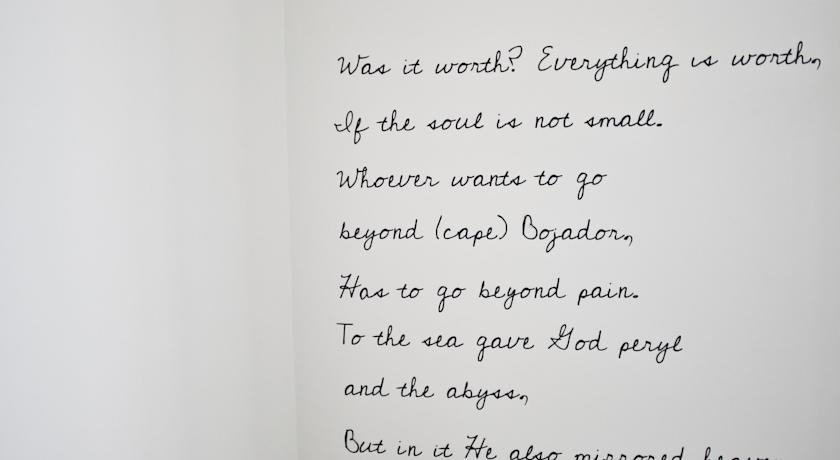 Was it worth? Everything is worth,
If the soul is not small.
Whoever wants to go
beyond (cape) Bojador,
Has to go beyond pain.
To the sea gave God peryl
and the abyss,
But in it He also mirrored